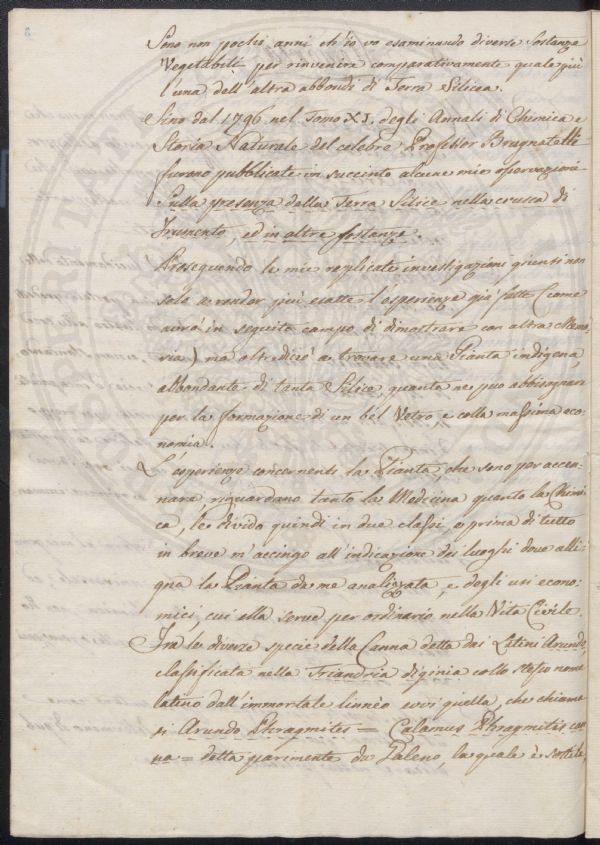 Sono non pochi anni ch'io vo esaminando diverse Sostanze
Vegetabili per rinvenire comparativamente quale più
l'una dell'altra abbondi di Terra Silicea.
Sino dal 1796 nel Tomo XI. degli Annali di Chimica e
Storia Naturale del celebre Professor Brugnatelli
furono pubblicate in succinto alcune mie osservazioni
Sulla presenza della Terra Silice nella crusca di
Frumento, ed in altre sostanze.
Proseguendo le mie replicate investigazioni giunsi non
solo a render più esatte l'esperienze già fatte (come
avrò in seguito campo di dimostrare con altra Memo
ria) ma oltrediciò a trovare una Pianta indigena,
abbondante di tanta Silice, quanta ne può abbisognare
per la formazione di un bel Vetro e colla massima eco
nomia.
L'esperienze concernenti la Pianta, che sono per accen
nare riguardano tanto la Medicina quanto la Chimi
ca, le divido quindi in due classi, e prima di tutto
in breve m'accingo all'indicazione dei luoghi dove alli
gna la Pianta da me analizzata, e degli usi econo:
mici, cui ella serve per ordinario nella Vita Civile.
Fra le diverse specie della Canna detta dai Latini Arundo,
classificata nella Triandria diginia collo stesso nome
latino dall'immortale Linnèo evvi quella, che chiama
si Arundo Phragmites = Calamus Phragmitis can
na = detta parimente da Galeno, la quale è sottile,